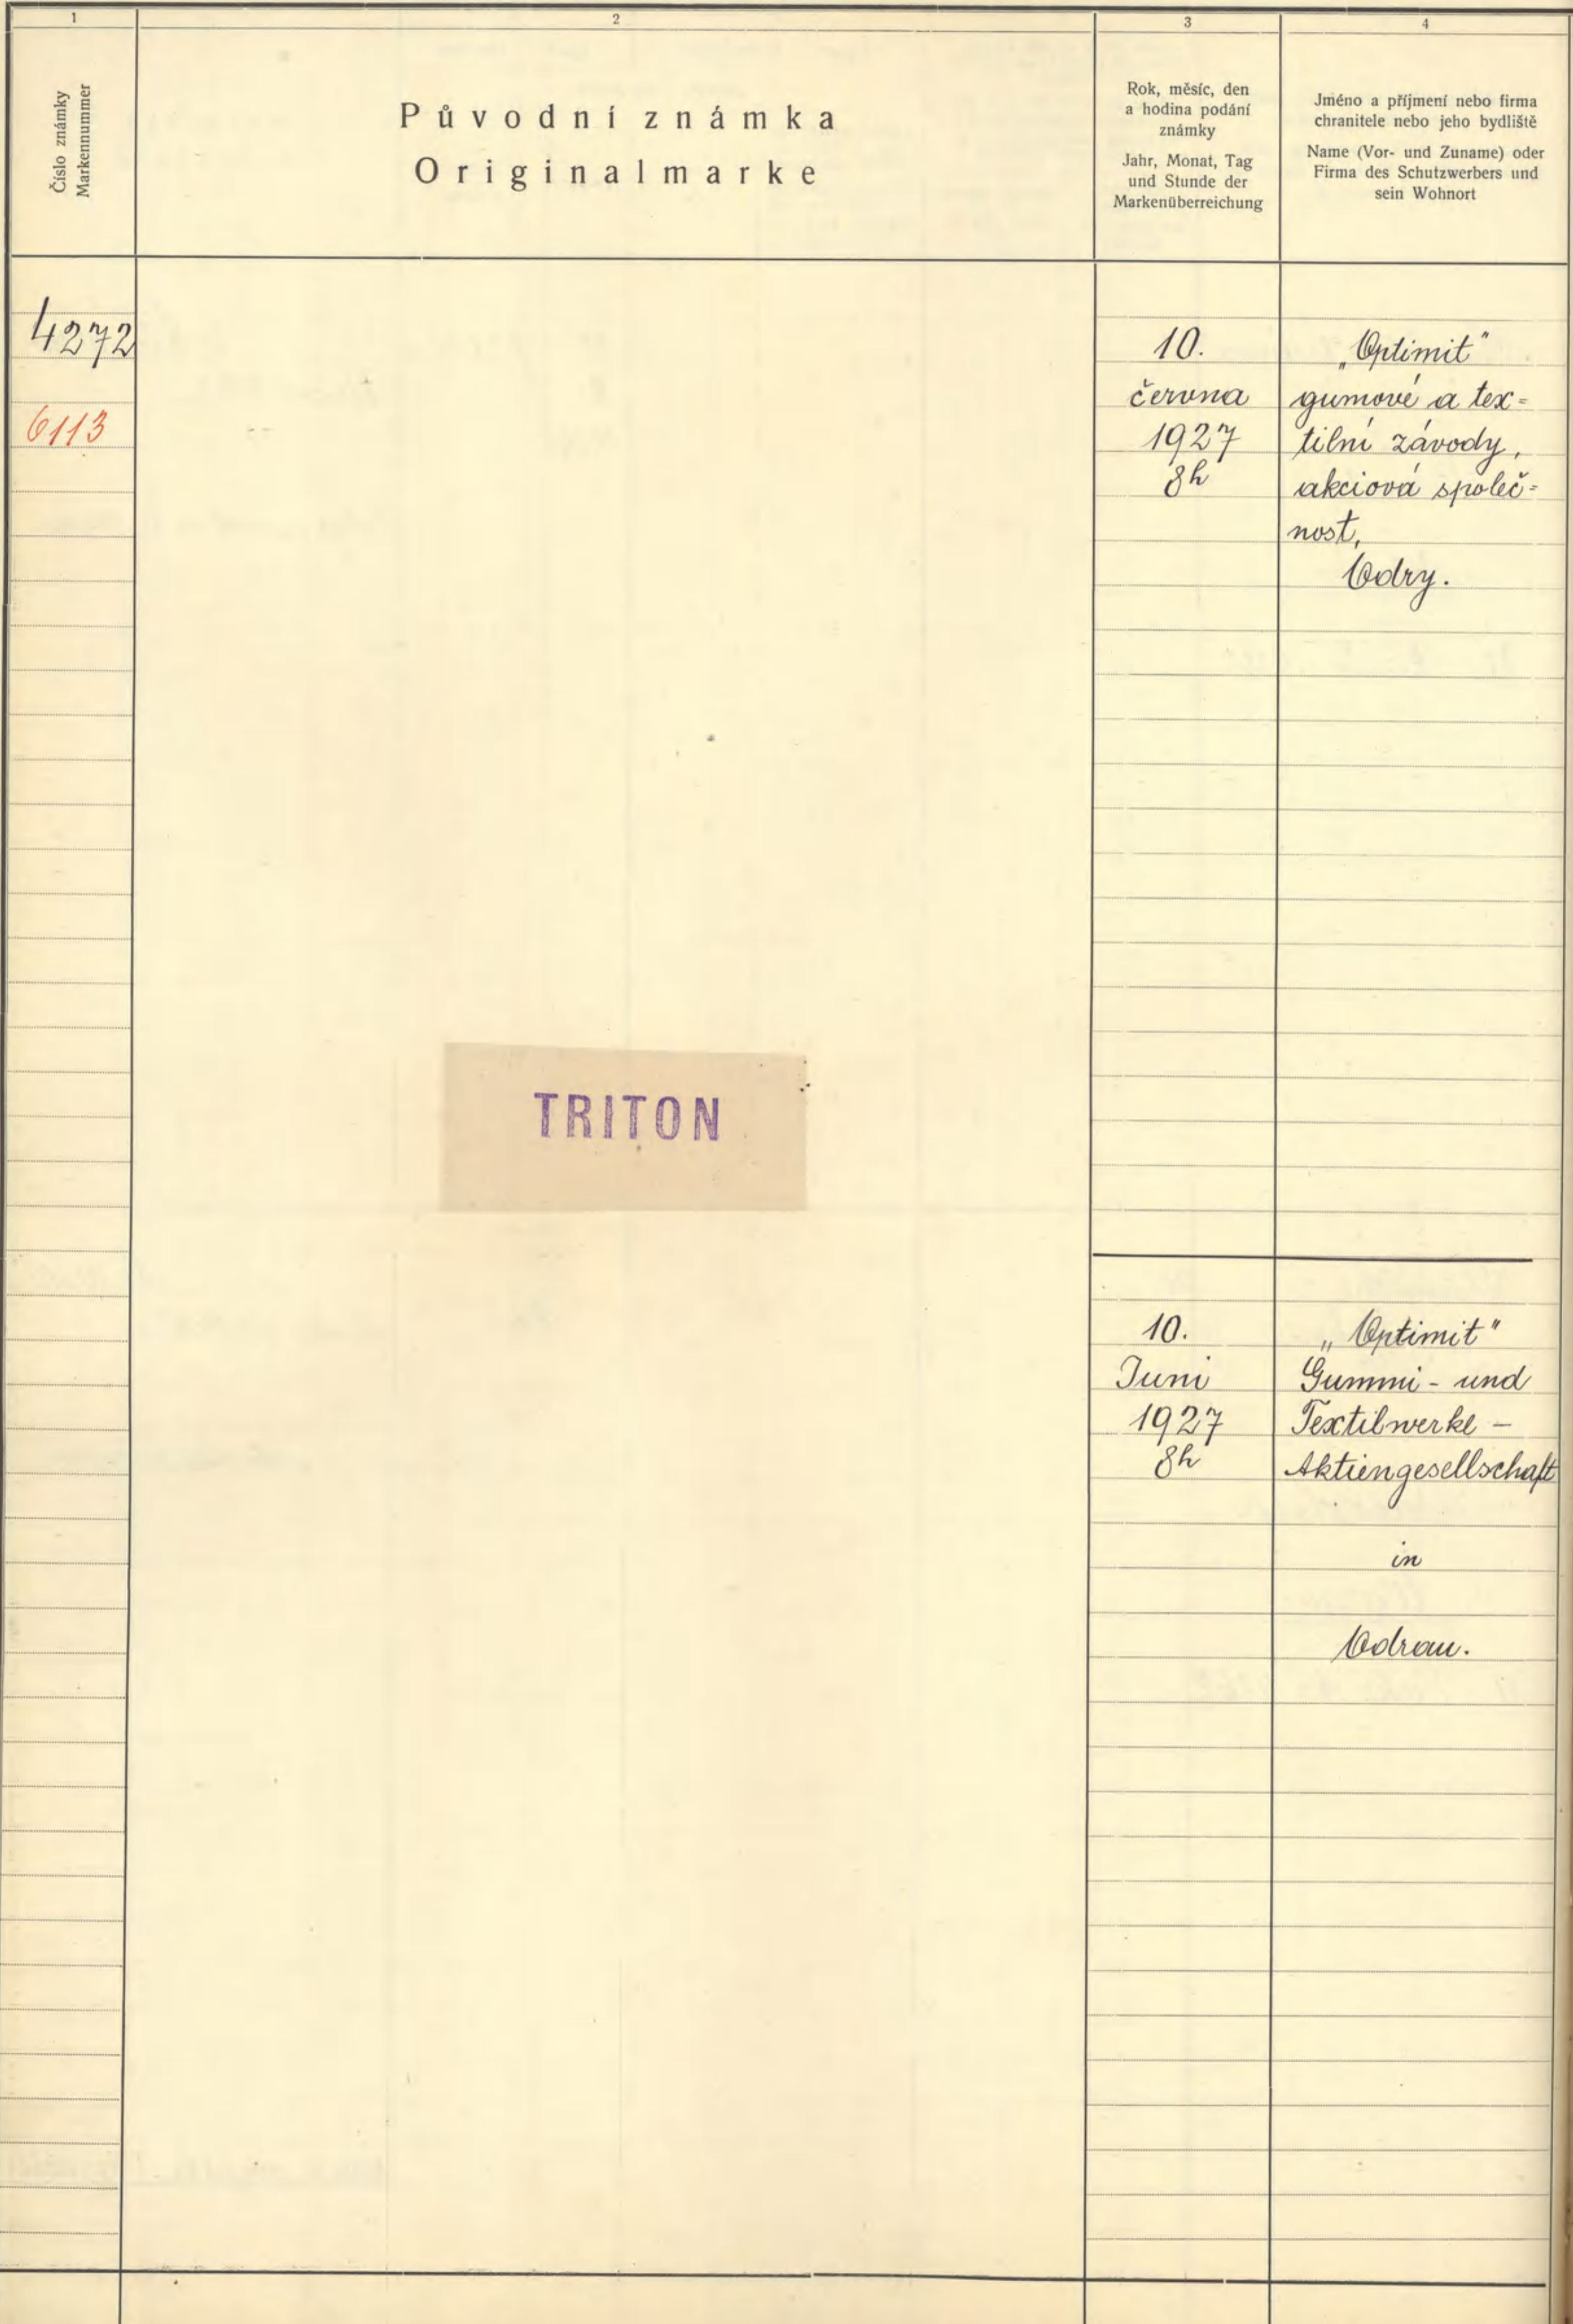 1
2
3
4
Číslo známky
Markennummer
Původní známka
Originalmarke
Rok, měsíc, den
a hodina podání
známky
Jahr, Monat, Tag
und Stunde der
Markenüberreichung
Jméno a příjmení nebo firma
chranitele nebo jeho bydliště
Name (Vor- und Zuname) oder
Firma des Schutzwerbers und
sein Wohnort
4272
6113
10.
června
1927
8h
„Optimit“
gumové a tex=
tilní závody,
akciová společ=
nost,
Odry.
TRITON
10.
Juni
1927
8h
„Optimit“
Gummi - und
Textilwerke -
Aktiengesellschaft
in
Odrau.